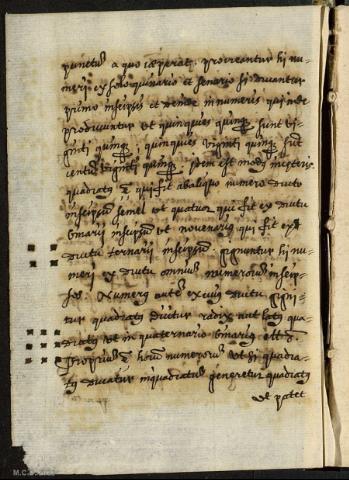 punctũ a quo cæperat. procreantur hi nu-
meri ex solo quinario et senario si ducantur
primo in seipsos et deinde in numeros qui inde
producuntur ut quinquies quinqȝ sunt vi-
ginti quinqȝ, quinquies viginti quinqȝ sũt
centũ viginti quinqȝ. idem est modꝯ in cęteris.
quadratꝯ ē qui fit ab aliquo numero ducto
in seipsum semel ut quatuor qui fit ex ductu
binarii in seipsũ et novenariꝯ qui fit ex
ductu ternarii in seipsũ. gignuntur hi nu-
meri ex ductu omniũ numerorũ in seip-
sos. Numerꝯ autẽ ex cuiꝯ ductu gigni-
tur quadratꝯ dicitur radix aut latꝯ qua-
drati ut in quaternario binariꝯ
propriũ ē horũ numerorũ ut si quadra-
tꝯ ducatur in quadratũ generetur quadratꝯ
ut patet
M.C.